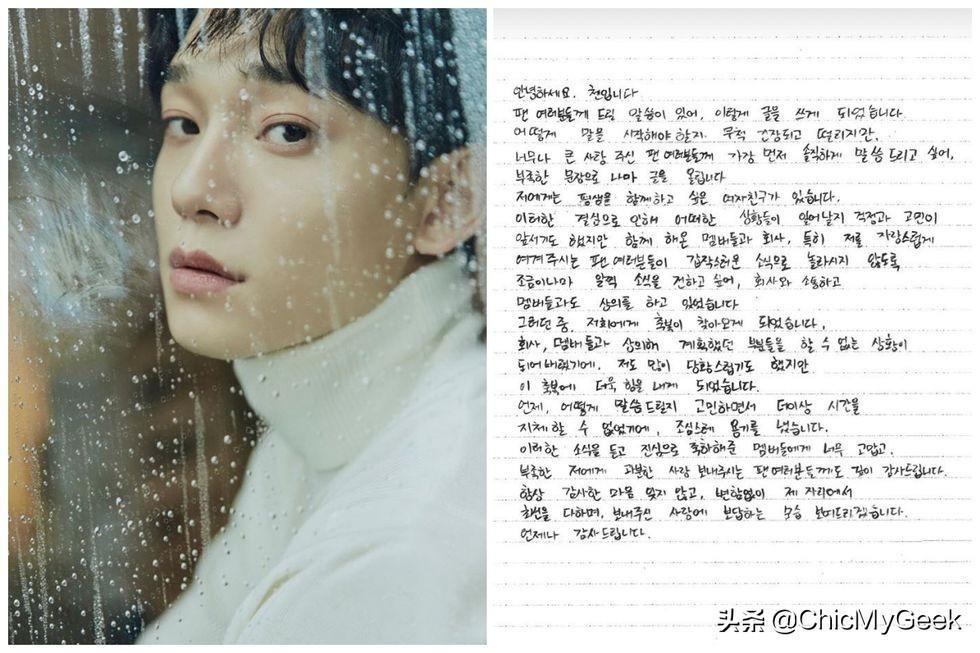 안녕하세요. 첸입니다
팬 여러분들께 드릴 말씀이 있어, 이렇게 글을 쓰게 되었습니다.
어떻게 말을 시작해야 할지 무척 긴장되고 떨리지만,
너무나 큰 사랑 주신 팬 여러분들께 가장 먼저 솔직하게 말씀드리고 싶어,
부족한 문장으로 나마 글을 올립니다
저에게는 평생을 함께하고 싶은 여자친구가 있습니다.
이러한 결심으로 인해 어떠한 상황들이 일어날지 걱정과 고민이
앞서기도 했지만 함께 해온 멤버들과 회사, 특히 저를 자랑스럽게
여겨주시는 팬 여러분들이 갑작스러운 소식으로 놀라시지 않도록
조금이나마 일찍 소식을 전하고 싶어, 회사와 소통하고
멤버들과도 상의를 하고 있었습니다
그러던 중, 저희에게 축복이 찾아오게 되었습니다.
회사, 멤버들과 상의해 계획했던 부분들을 할 수 없는 상황이
되어버렸기에. 저도 많이 당황스럽기도 했지만
이 축복에 더욱 힘을 내게 되었습니다.
언제, 어떻게 말씀드릴지 고민하면서 더이상 시간을
지체할 수 없었기에, 조심스레 용기를 냈습니다.
이러한 소식을 듣고 진심으로 축하해준 멤버들에게 너무 고맙고.
부족한 저에게 과분한 사랑 보내주시는 팬 여러분들께도 깊이 감사드립니다.
항상 감사한 마음 잊지 않고, 변함없이 제 자리에서
최선을 다하며, 보내주신 사랑에 보답하는 모습 보여드리겠습니다.
언제나 감사드립니다.
头条 @ChicMyGeek